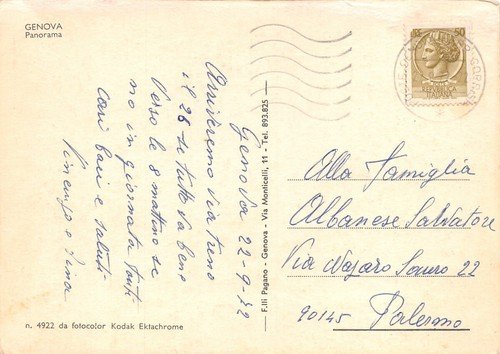 GENOVA
Panorama
Genova 22-9-72
Arriveremo via treno
il 26 se tutto va bene
verso le 8 mattino se
no in giornata tanti
cari baci e saluti
Vincenzo e Lina
F.lli Pagano - Genova - Via Monticelli, 11 - Tel. 893.825
n. 4922 da fotocolor Kodak Ektachrome
50
Alla Famiglia
Albanese Salvatore
Via Nazaro Sauro 22
90145 Palermo